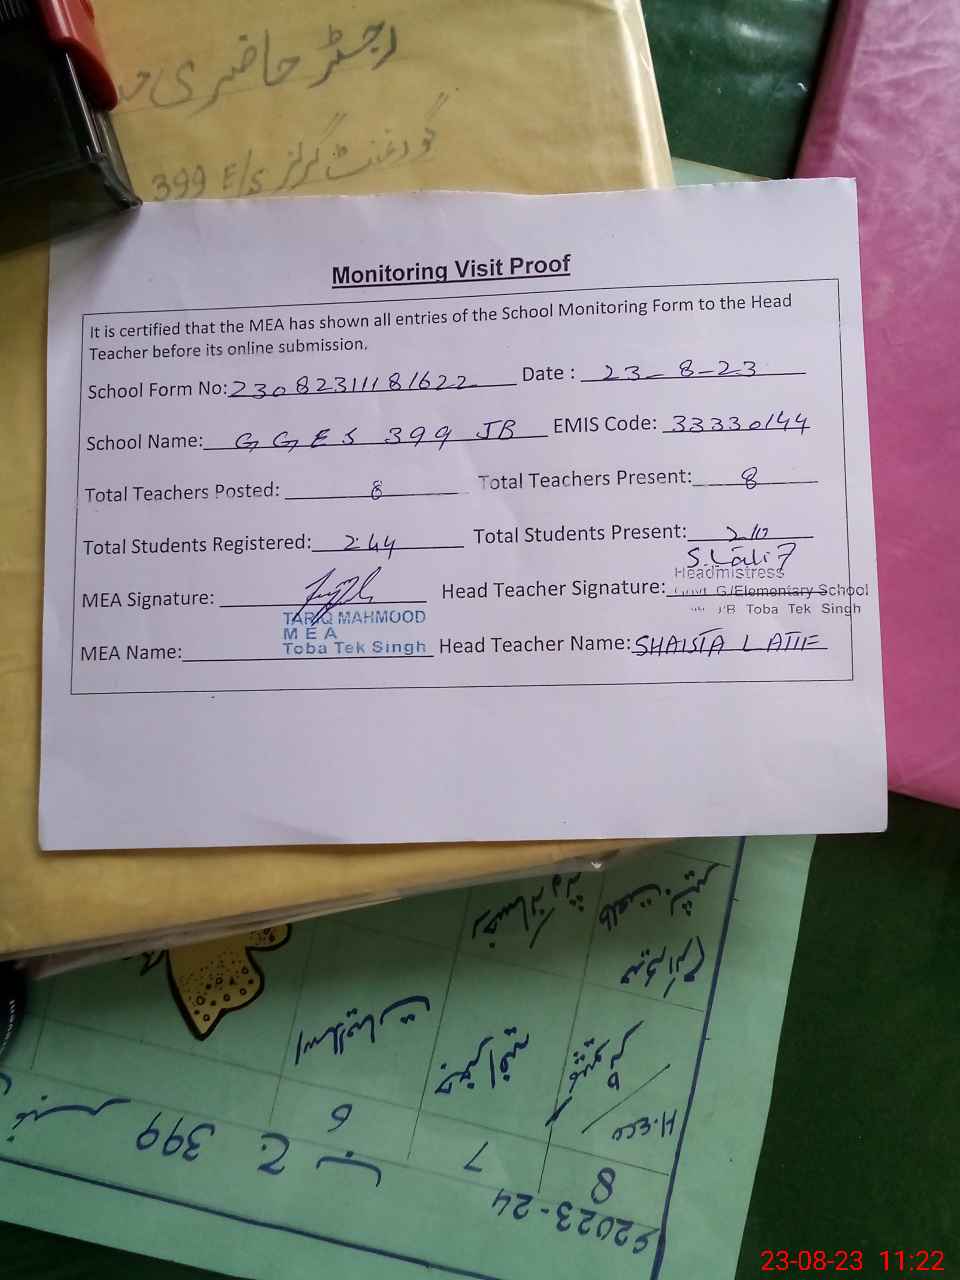 رجسٹر حاضری
گورنمنٹ گرلز E/S 399
Monitoring Visit Proof
It is certified that the MEA has shown all entries of the School Monitoring Form to the Head
Teacher before its online submission.
School Form No: 23082311181622 Date : 23-8-23
School Name: GGES 399 JB EMIS Code: 33330144
Total Teachers Posted: 8 Total Teachers Present: 8
Total Students Registered: 244 Total Students Present: 210
S. Latif
Headmistress
MEA Signature: Head Teacher Signature: Govt G/Elementary School
JB Toba Tek Singh
TARIQ MAHMOOD
MEA
MEA Name: Toba Tek Singh Head Teacher Name: SHAISTA LATIF
اسلامیات
جغرافیہ
H.ECE
6
7
8
399 ج ب
2023-24
23-08-23 11:22